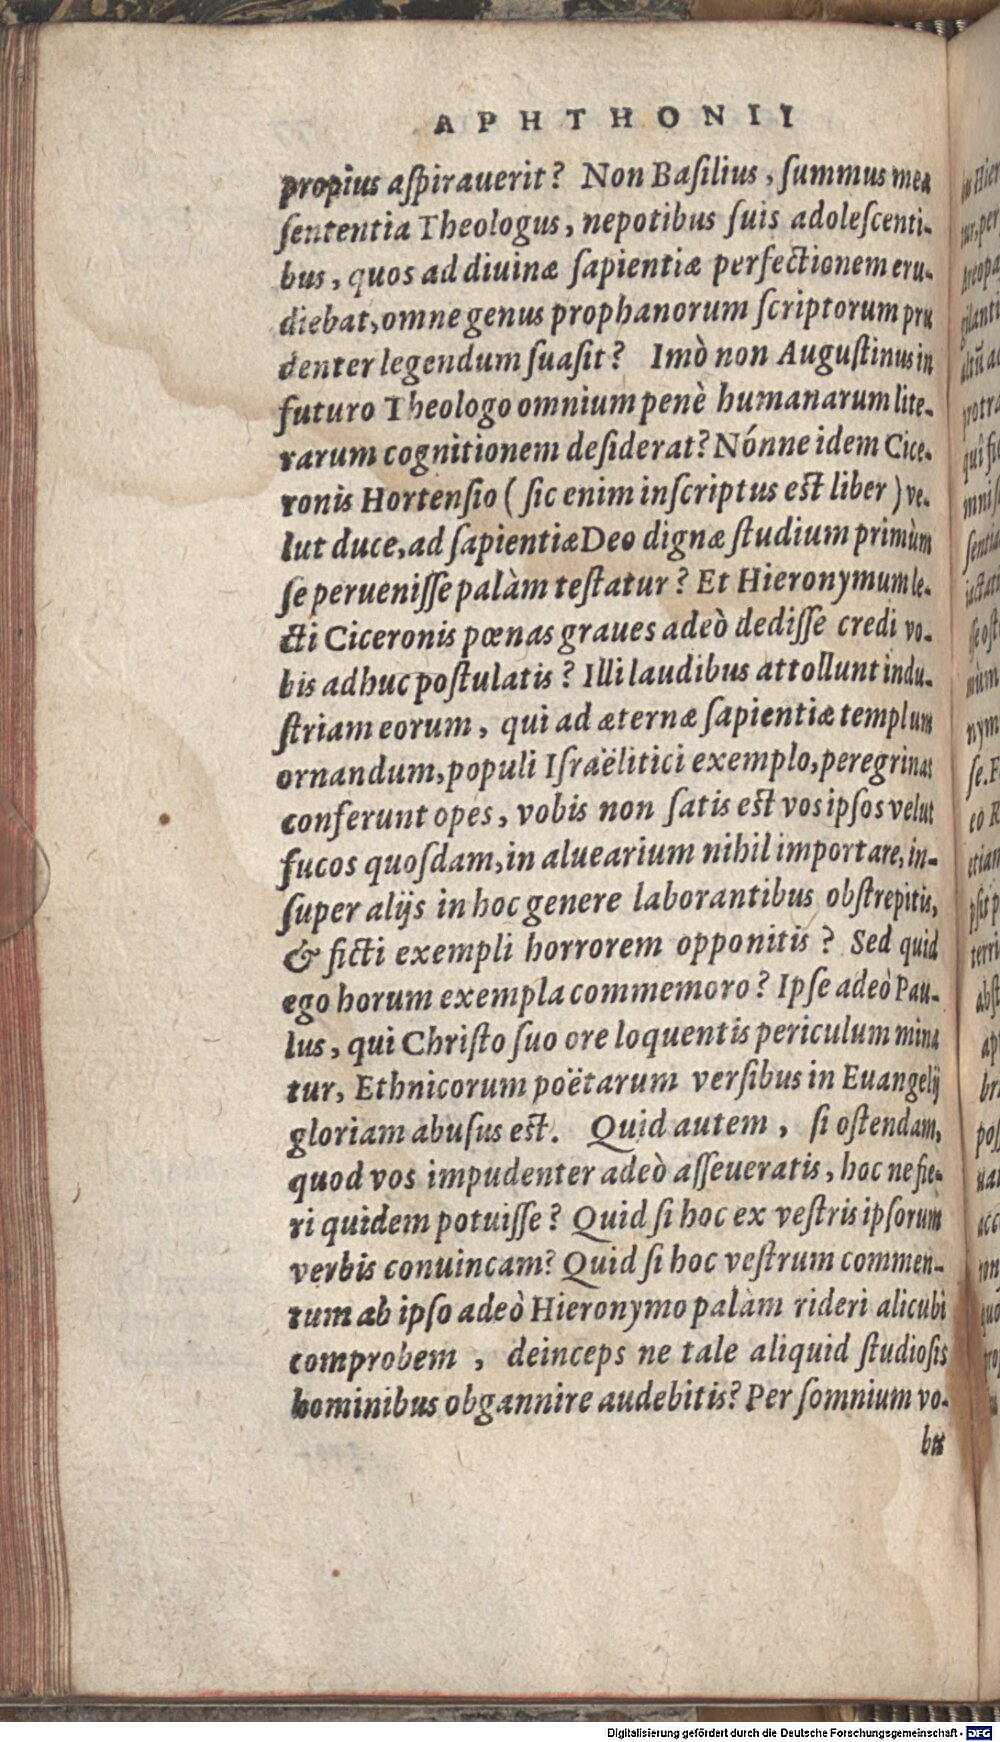 APHTHONII
propius aſpirauerit? Non Baſilius, ſummus mea
ſententia Theologus, nepotibus ſuis adoleſcenti-
bus, quos ad diuinæ ſapientiæ perfectionem eru-
diebat, omne genus prophanorum ſcriptorum pru
denter legendum ſuaſit? Imò non Auguſtinus in
futuro Theologo omnium penè humanarum lite-
rarum cognitionem deſiderat? Nónne idem Cice-
ronis Hortenſio (ſic enim inſcriptus eſt liber) ve-
lut duce, ad ſapientiæ Deo dignæ ſtudium primùm
ſe perueniſſe palàm teſtatur? Et Hieronymum le-
cti Ciceronis pœnas graues adeò dediſſe credi vo-
bis adhuc poſtulatis? Illi laudibus attollunt indu-
ſtriam eorum, qui ad æternæ ſapientiæ templum
ornandum, populi Iſraëlitici exemplo, peregrinas
conferunt opes, vobis non ſatis eſt vos ipſos velut
fucos quoſdam, in aluearium nihil importare, in-
ſuper alijs in hoc genere laborantibus obſtrepitis,
& ficti exempli horrorem opponitis? Sed quid
ego horum exempla commemoro? Ipſe adeò Pau-
lus, qui Chriſto ſuo ore loquentis periculum mina
tur, Ethnicorum poëtarum verſibus in Euangelij
gloriam abuſus eſt. Quid autem, ſi oſtendam,
quod vos impudenter adeò aſſeueratis, hoc ne fie-
ri quidem potuiſſe? Quid ſi hoc ex veſtris ipſorum
verbis conuincam? Quid ſi hoc veſtrum commen-
tum ab ipſo adeò Hieronymo palàm rideri alicubi
comprobem, deinceps ne tale aliquid ſtudioſis
hominibus obgannire audebitis? Per ſomnium vo-
bis
Digitalisierung gefördert durch die Deutsche Forschungsgemeinschaft - DFG